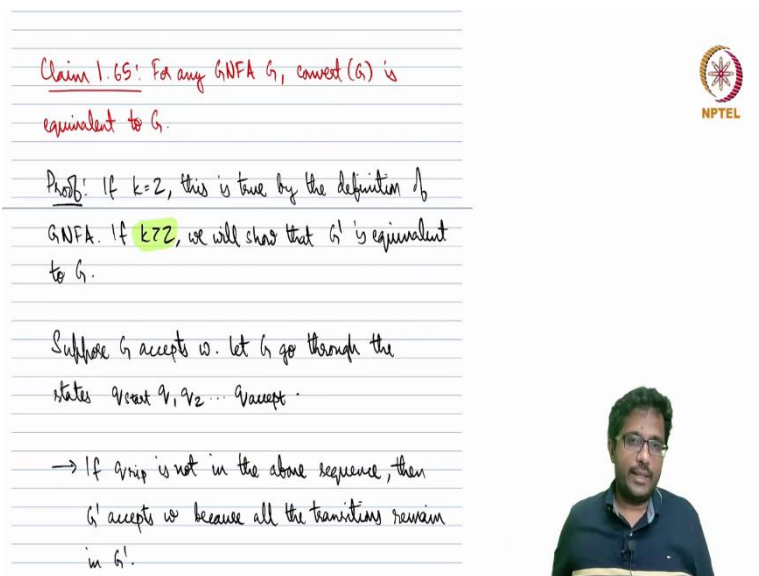 Claim 1.65: For any GNFA G, convert (G) is
equivalent to G.
Proof: If k=2, this is true by the definition of
GNFA. If k>2, we will show that G' is equivalent
to G.
Suppose G accepts w. Let G go through the
states qstart q1 q2 ... qaccept.
→ If qrip is not in the above sequence, then
G' accepts w because all the transitions remain
in G'.
NPTEL